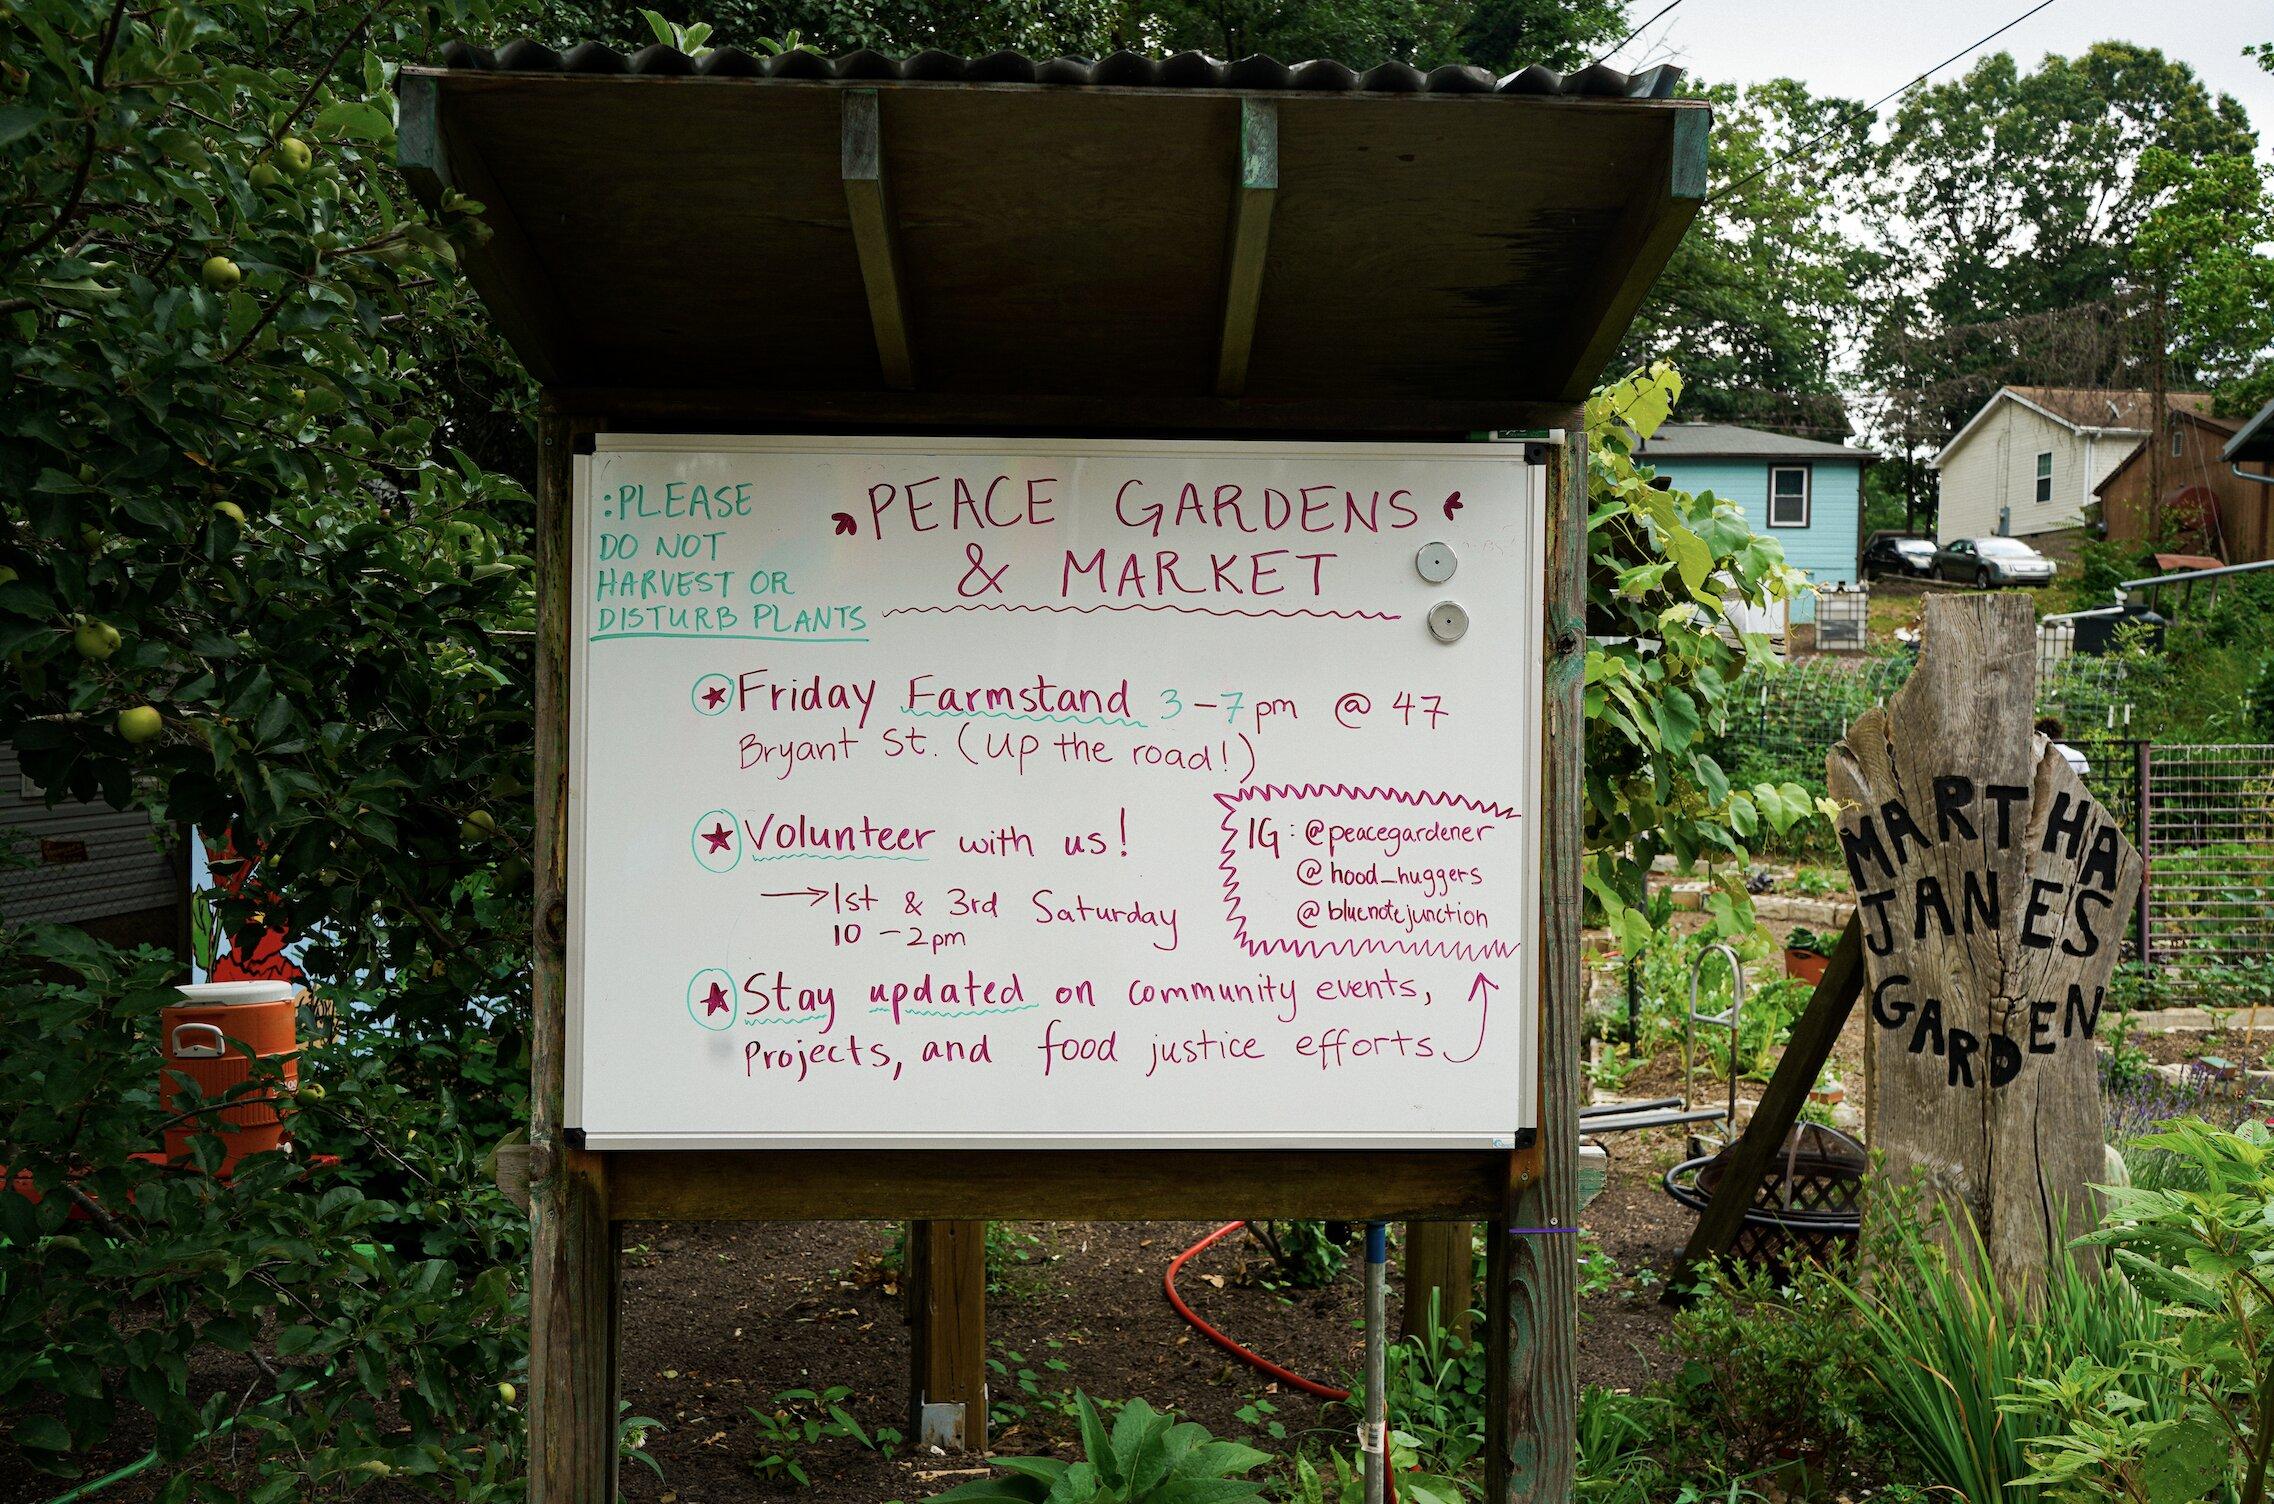 :PLEASE
DO NOT
HARVEST OR
DISTURB PLANTS
PEACE GARDENS
& MARKET
Friday Farmstand 3-7pm @ 47
Bryant St. (up the road!)
Volunteer with us!
→1st & 3rd Saturday
10 -2pm
IG: @peacegardener
@hood_huggers
@bluenotejunction
Stay updated on community events,
Projects, and food justice efforts
MARTHA
JANE'S
GARDEN